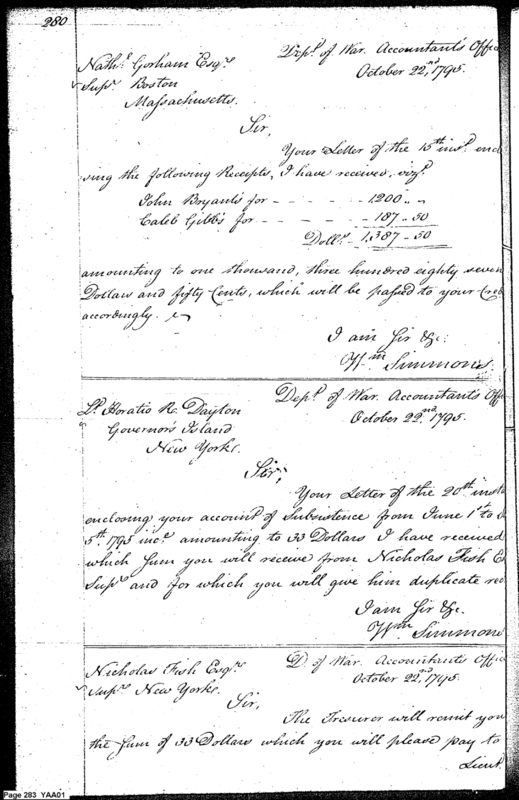 280
Dept. of War. Accountant's Offi
October 22nd, 1795.
Nathl. Gorham Esqr.
Supr. Boston
Massachusetts.
Sir,
Your Letter of the 15th inst. enclo
sing the following Receipts, I have received, vizt.
John Bryants for - - - - - 1200 " "
Caleb Gibbs for - - - - - 187 - 50
Dollrs. 1,387 - 50
amounting to one thousand, three hundred eighty seven
Dollars and fifty Cents, which will be passed to your Cred
accordingly.
I am Sir &c:
Wm Simmons.
Dept. of War. Accountants Offi
October 22nd, 1795.
Lt. Horatio R. Dayton
Governor's Island
New Yorke.
Sir,
Your Letter of the 20th inst
enclosing your account of Subsistence from June 1st to
5th. 1795 incl. amounting to 33 Dollars I have received
which Sum you will receive from Nicholas Fish E
Supr. and for which you will give him duplicate rec
I am Sir &c.
Wm Simmons
D. of War. Accountants Offic
October 22nd, 1795.
Nicholas Fish Esqr.
Supr. New Yorke.
Sir,
The Tresurer will remit you
the Sum of 33 Dollars which you will please pay to
Lieut.
Page 283 YAA01